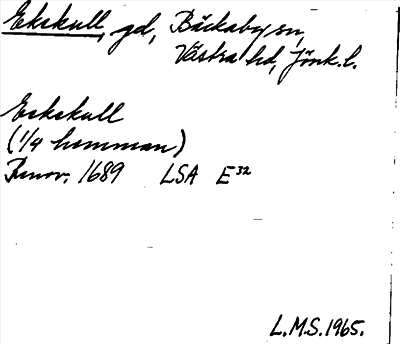 Ekskull, gd, Bäckaby sn,
Västra hd, Jönk.l.
Eekskull
(1/4 hemman)
Renov. 1689 LSA E32
L.M.S. 1965.